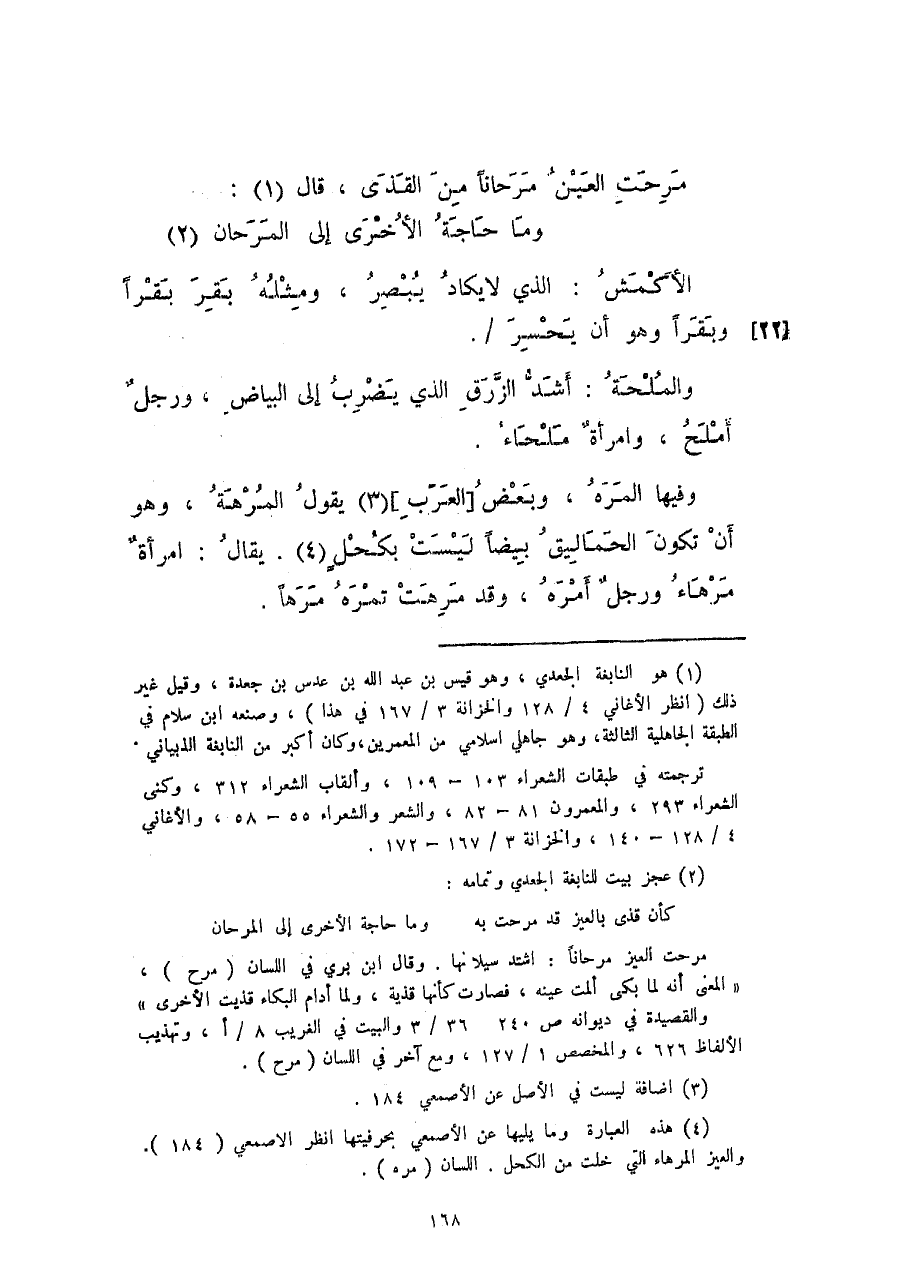 مَرِحَتِ العَيْنُ مَرَحَاناً مِنَ القَذَى ، قال (١) :
ومَا حَاجَةُ الأُخْرَى إلى المَرَحان (٢)
الأَكْمَشُ : الذي لايكادُ يُبْصِرُ ، ومِثْلُهُ بَقِرَ بَقْراً
[٢٢] وبَقَرَاً وهو أن يَحْسِرَ / .
والمُلْحَةُ : أَشَدُّ الزَّرَقِ الذي يَضْرِبُ إلى البياضِ ، ورجلٌ
أَمْلَحُ ، وامرأةٌ مَلْحَاءُ .
وفيها المَرَهُ ، وبَعْضُ [العَرَبِ](٣) يقولُ المُرْهَةُ ، وهو
أَنْ تكونَ الحَمَالِيقُ بِيضاً لَيْسَتْ بكُحْلٍ (٤) . يقالُ : امرأةٌ
مَرْهَاءُ ورجلٌ أَمْرَهُ ، وقد مَرِهَتْ تمْرَهُ مَرَهاً .
(١) هو النابغة الجعدي ، وهو قيس بن عبد الله بن عدس بن جعدة ، وقيل غير
ذلك ( انظر الأغاني ٤ / ١٢٨ والخزانة ٣ / ١٦٧ في هذا ) ، وصنعه ابن سلام في
الطبقة الجاهلية الثالثة، وهو جاهلي اسلامي من المعمرين،وكان أكبر من النابغة الذبياني .
ترجمته في طبقات الشعراء ١٠٣ – ١٠٩ ، وألقاب الشعراء ٣١٢ ، وكنى
الشعراء ٢٩٣ ، والمعمرون ٨١ – ٨٢ ، والشعر والشعراء ٥٥ – ٥٨ ، والأغاني
٤ / ١٢٨ – ١٤٠ ، والخزانة ٣ / ١٦٧ – ١٧٢ .
(٢) عجز بيت للنابغة الجعدي وتمامه :
كأن قذى بالعيز قد مرحت به وما حاجة الأخرى إلى المرحان
مرحت العيز مرحاناً : اشتد سيلانها . وقال ابن بري في اللسان ( مرح ) ،
« المعنى أنه لما بكى ألمت عينه ، فصارت كأنها قذية ، ولما أدام البكاء قذيت الأخرى »
والقصيدة في ديوانه ص ٢٤٠ ٣٦ / ٣ والبيت في الغريب ٨ / أ ، وتهذيب
الألفاظ ٦٢٦ ، والمخصص ١ / ١٢٧ ، ومع آخر في اللسان ( مرح ) .
(٣) اضافة ليست في الأصل عن الأصمعي ١٨٤ .
(٤) هذه العبارة وما يليها عن الأصمعي بحرفيتها انظر الاصمعي ( ١٨٤ ).
والعيز المرهاء التي خلت من الكحل . اللسان ( مره ) .
١٦٨